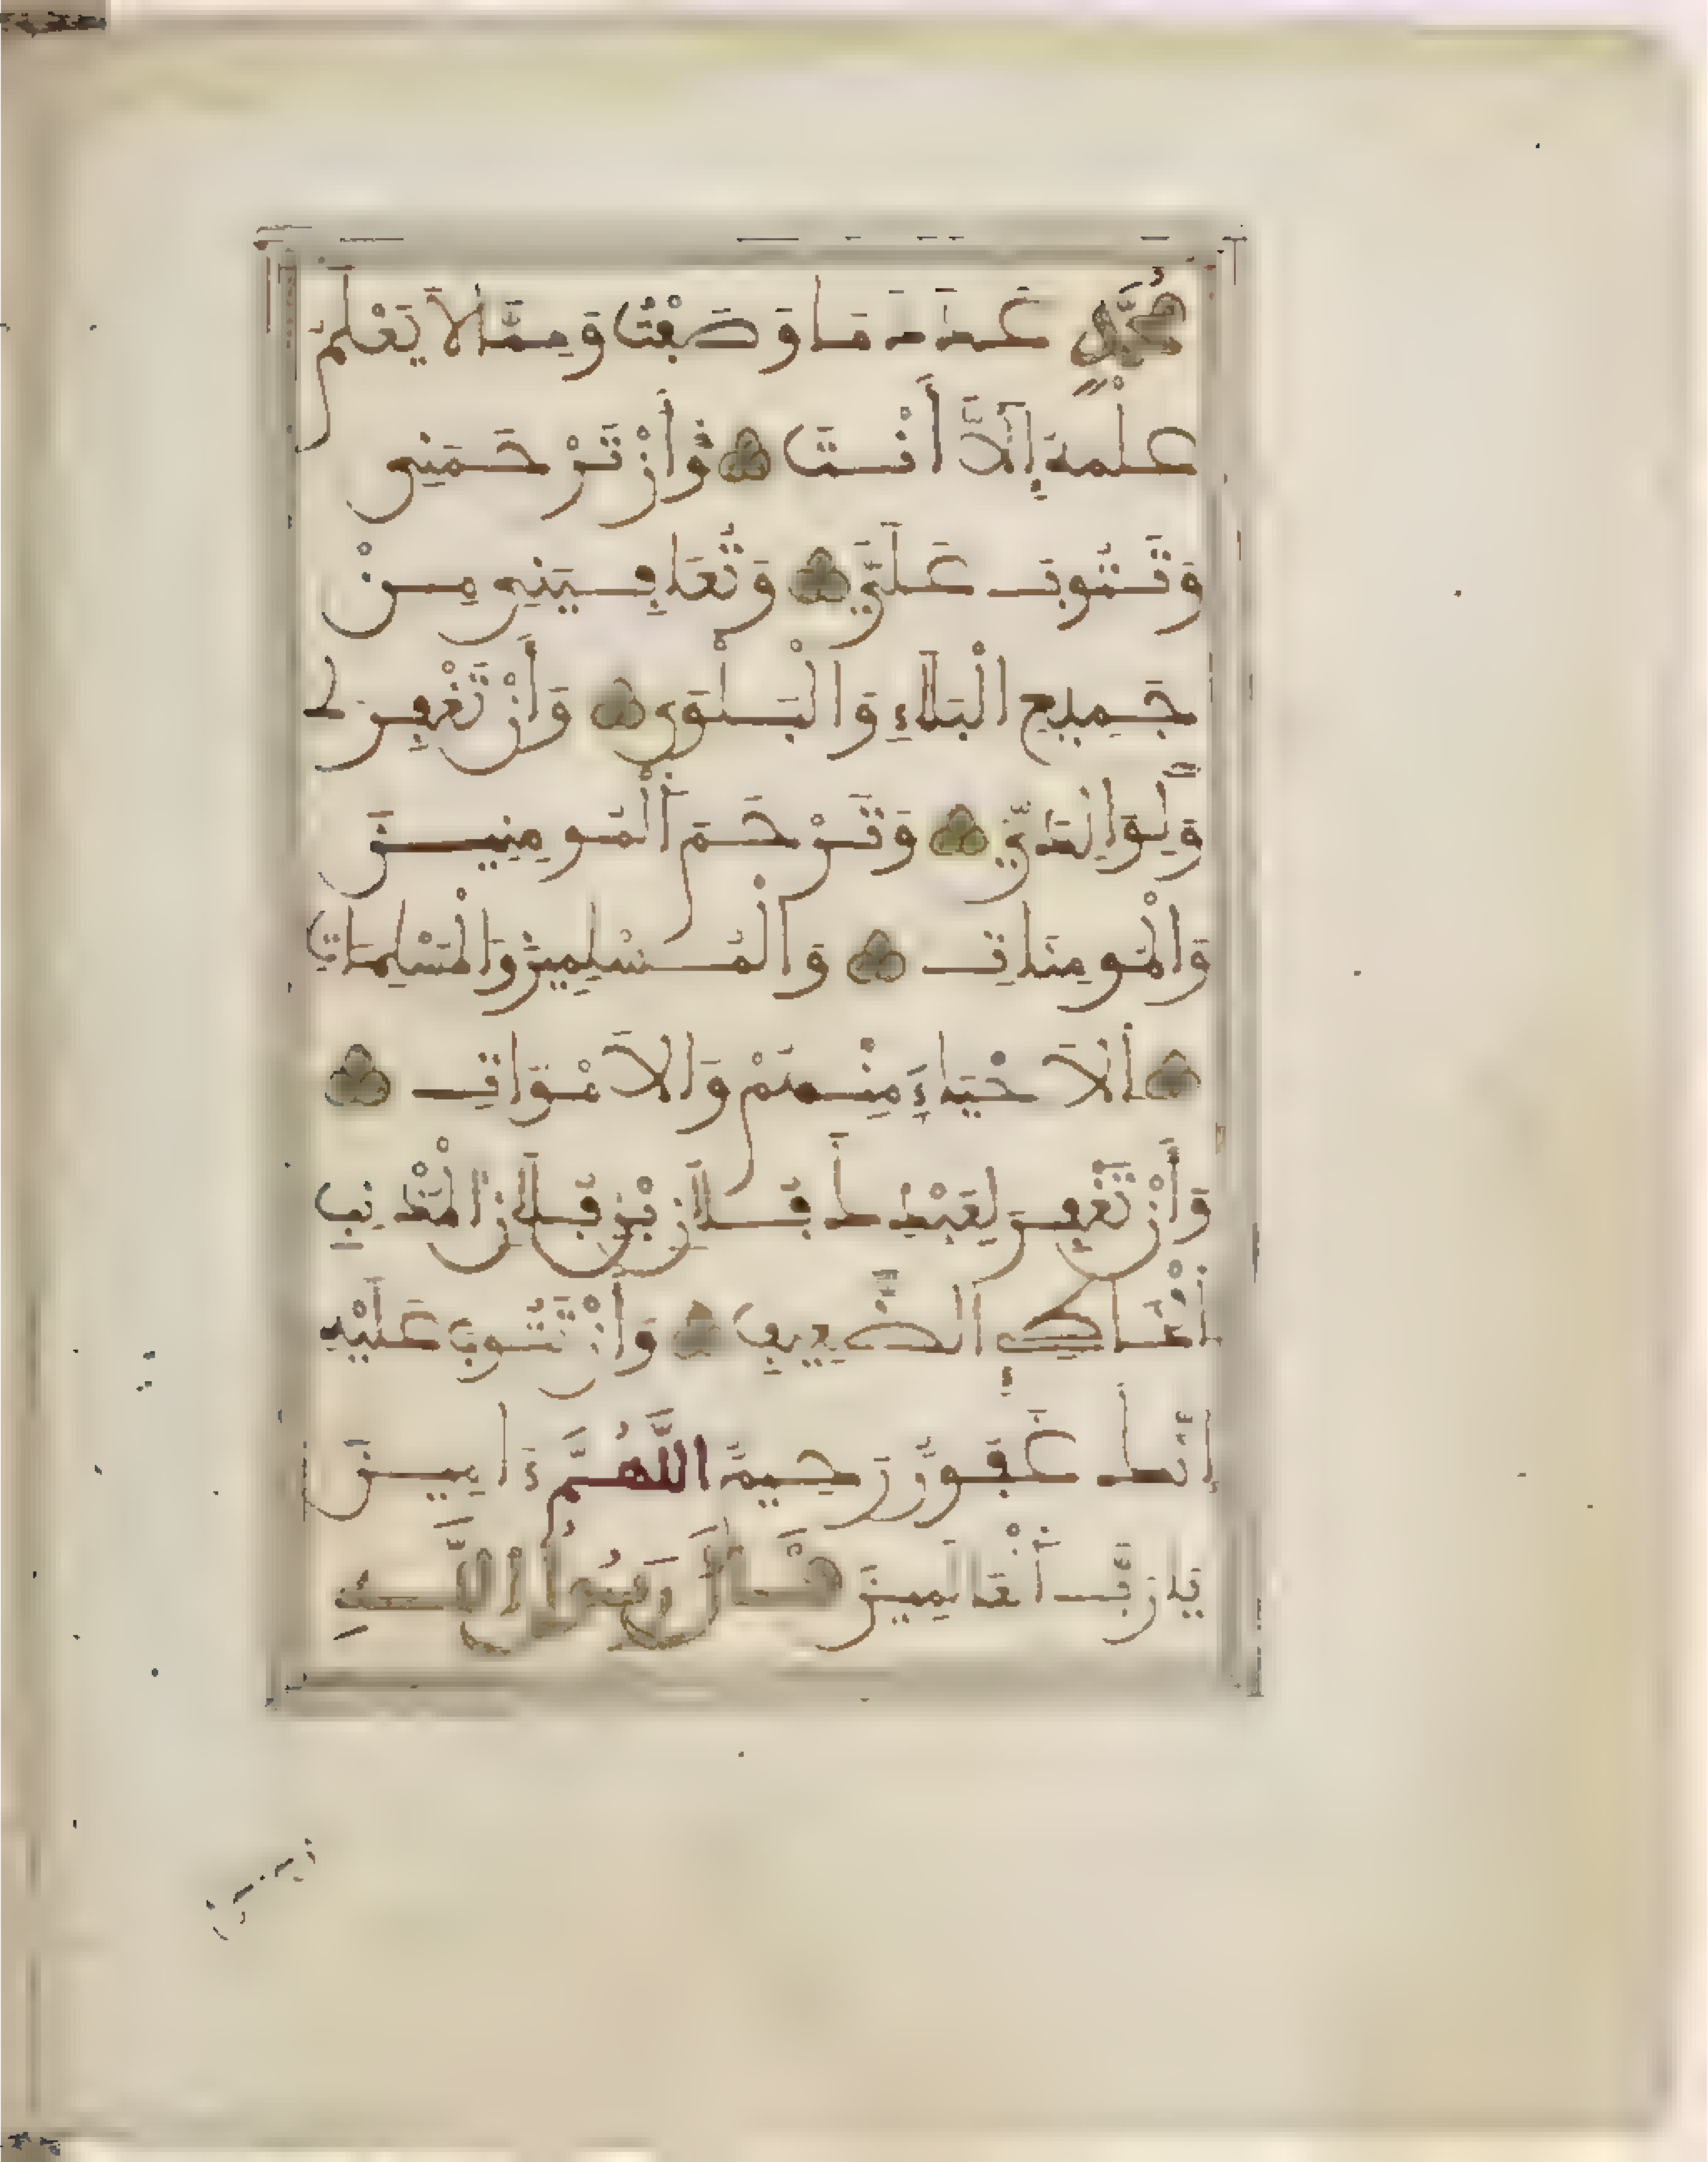 مُحَمَّدٍ عَدَدَ مَا وَصَفْتُ وَمِمَّا لَا يَعْلَمُ
عِلْمَهُ إِلَّا أَنْتَ وَأَنْ تَرْحَمَنِي
وَتَتُوبَ عَلَيَّ وَتُعَافِيَنِي مِنْ
جَمِيعِ الْبَلَاءِ وَالْبَلْوَى وَأَنْ تَغْفِرَ لِي
وَلِوَالِدَيَّ وَتَرْحَمَ الْمُومِنِينَ
وَالْمُومِنَاتِ وَالْمُسْلِمِينَ وَالْمُسْلِمَاتِ
الْأَحْيَاءِ مِنْهُمْ وَالْأَمْوَاتِ
وَأَنْ تَغْفِرَ لِعَبْدِكَ فُلَانِ بْنِ فُلَانٍ الْمُذْنِبِ
الْخَاطِئِ الضَّعِيفِ وَأَنْ تَتُوبَ عَلَيْهِ
إِنَّكَ غَفُورٌ رَحِيمٌ اللَّهُمَّ ءَامِينَ
يَا رَبَّ الْعَالَمِينَ قَالَ رَسُولُ اللَّهِ